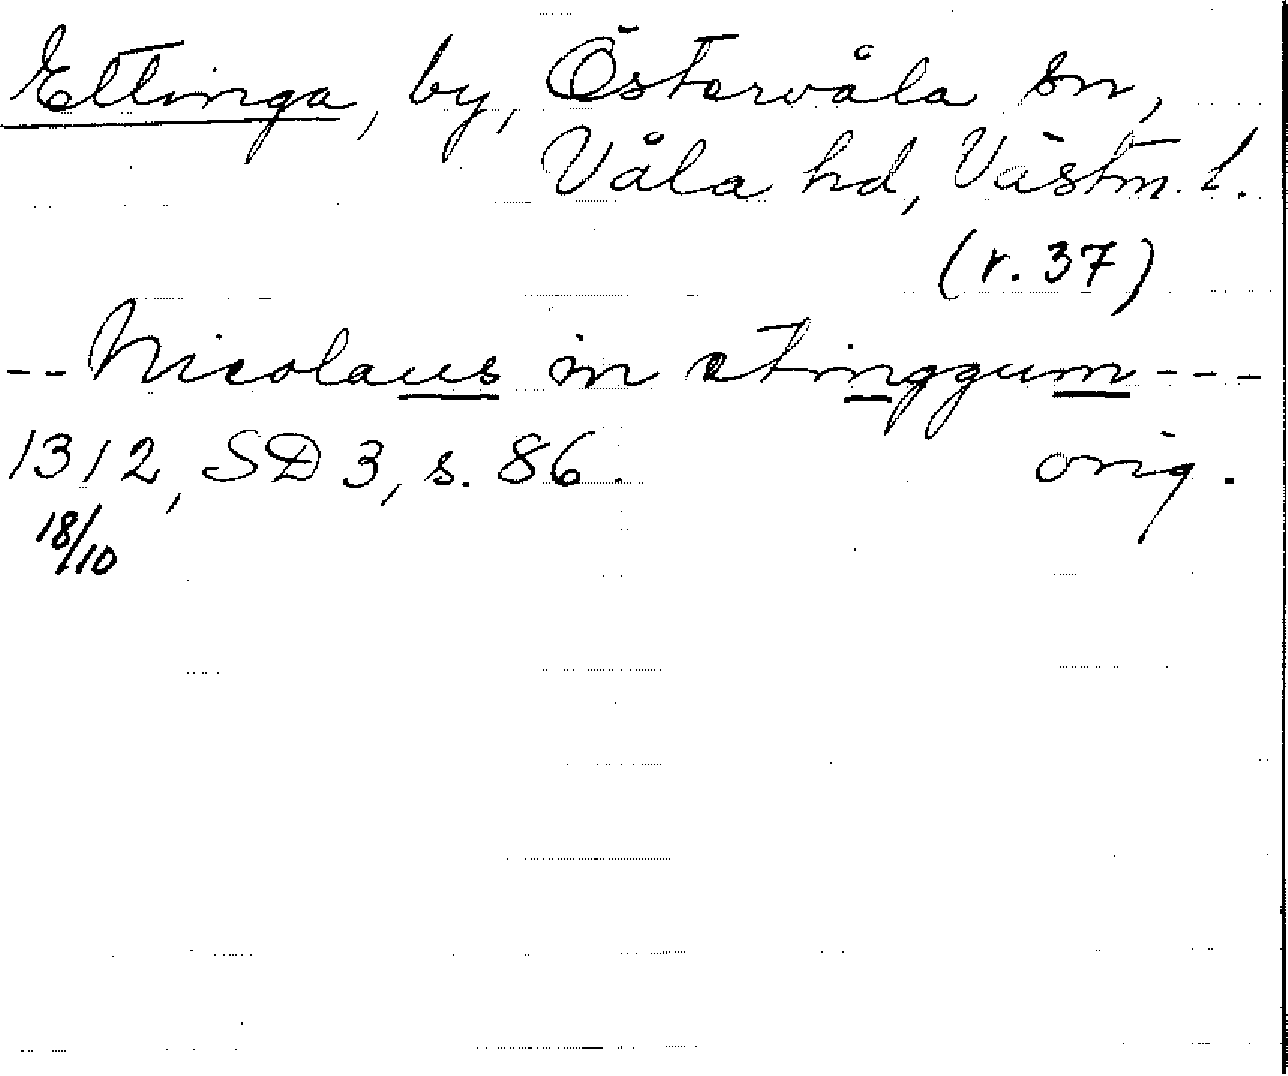 Ettinga, by, Östervåla sn,
Våla hd, Västm. l.
(r. 37)
-- Nicolaus in etinggum ---
1312, SD 3, s. 86. orig.
18/10